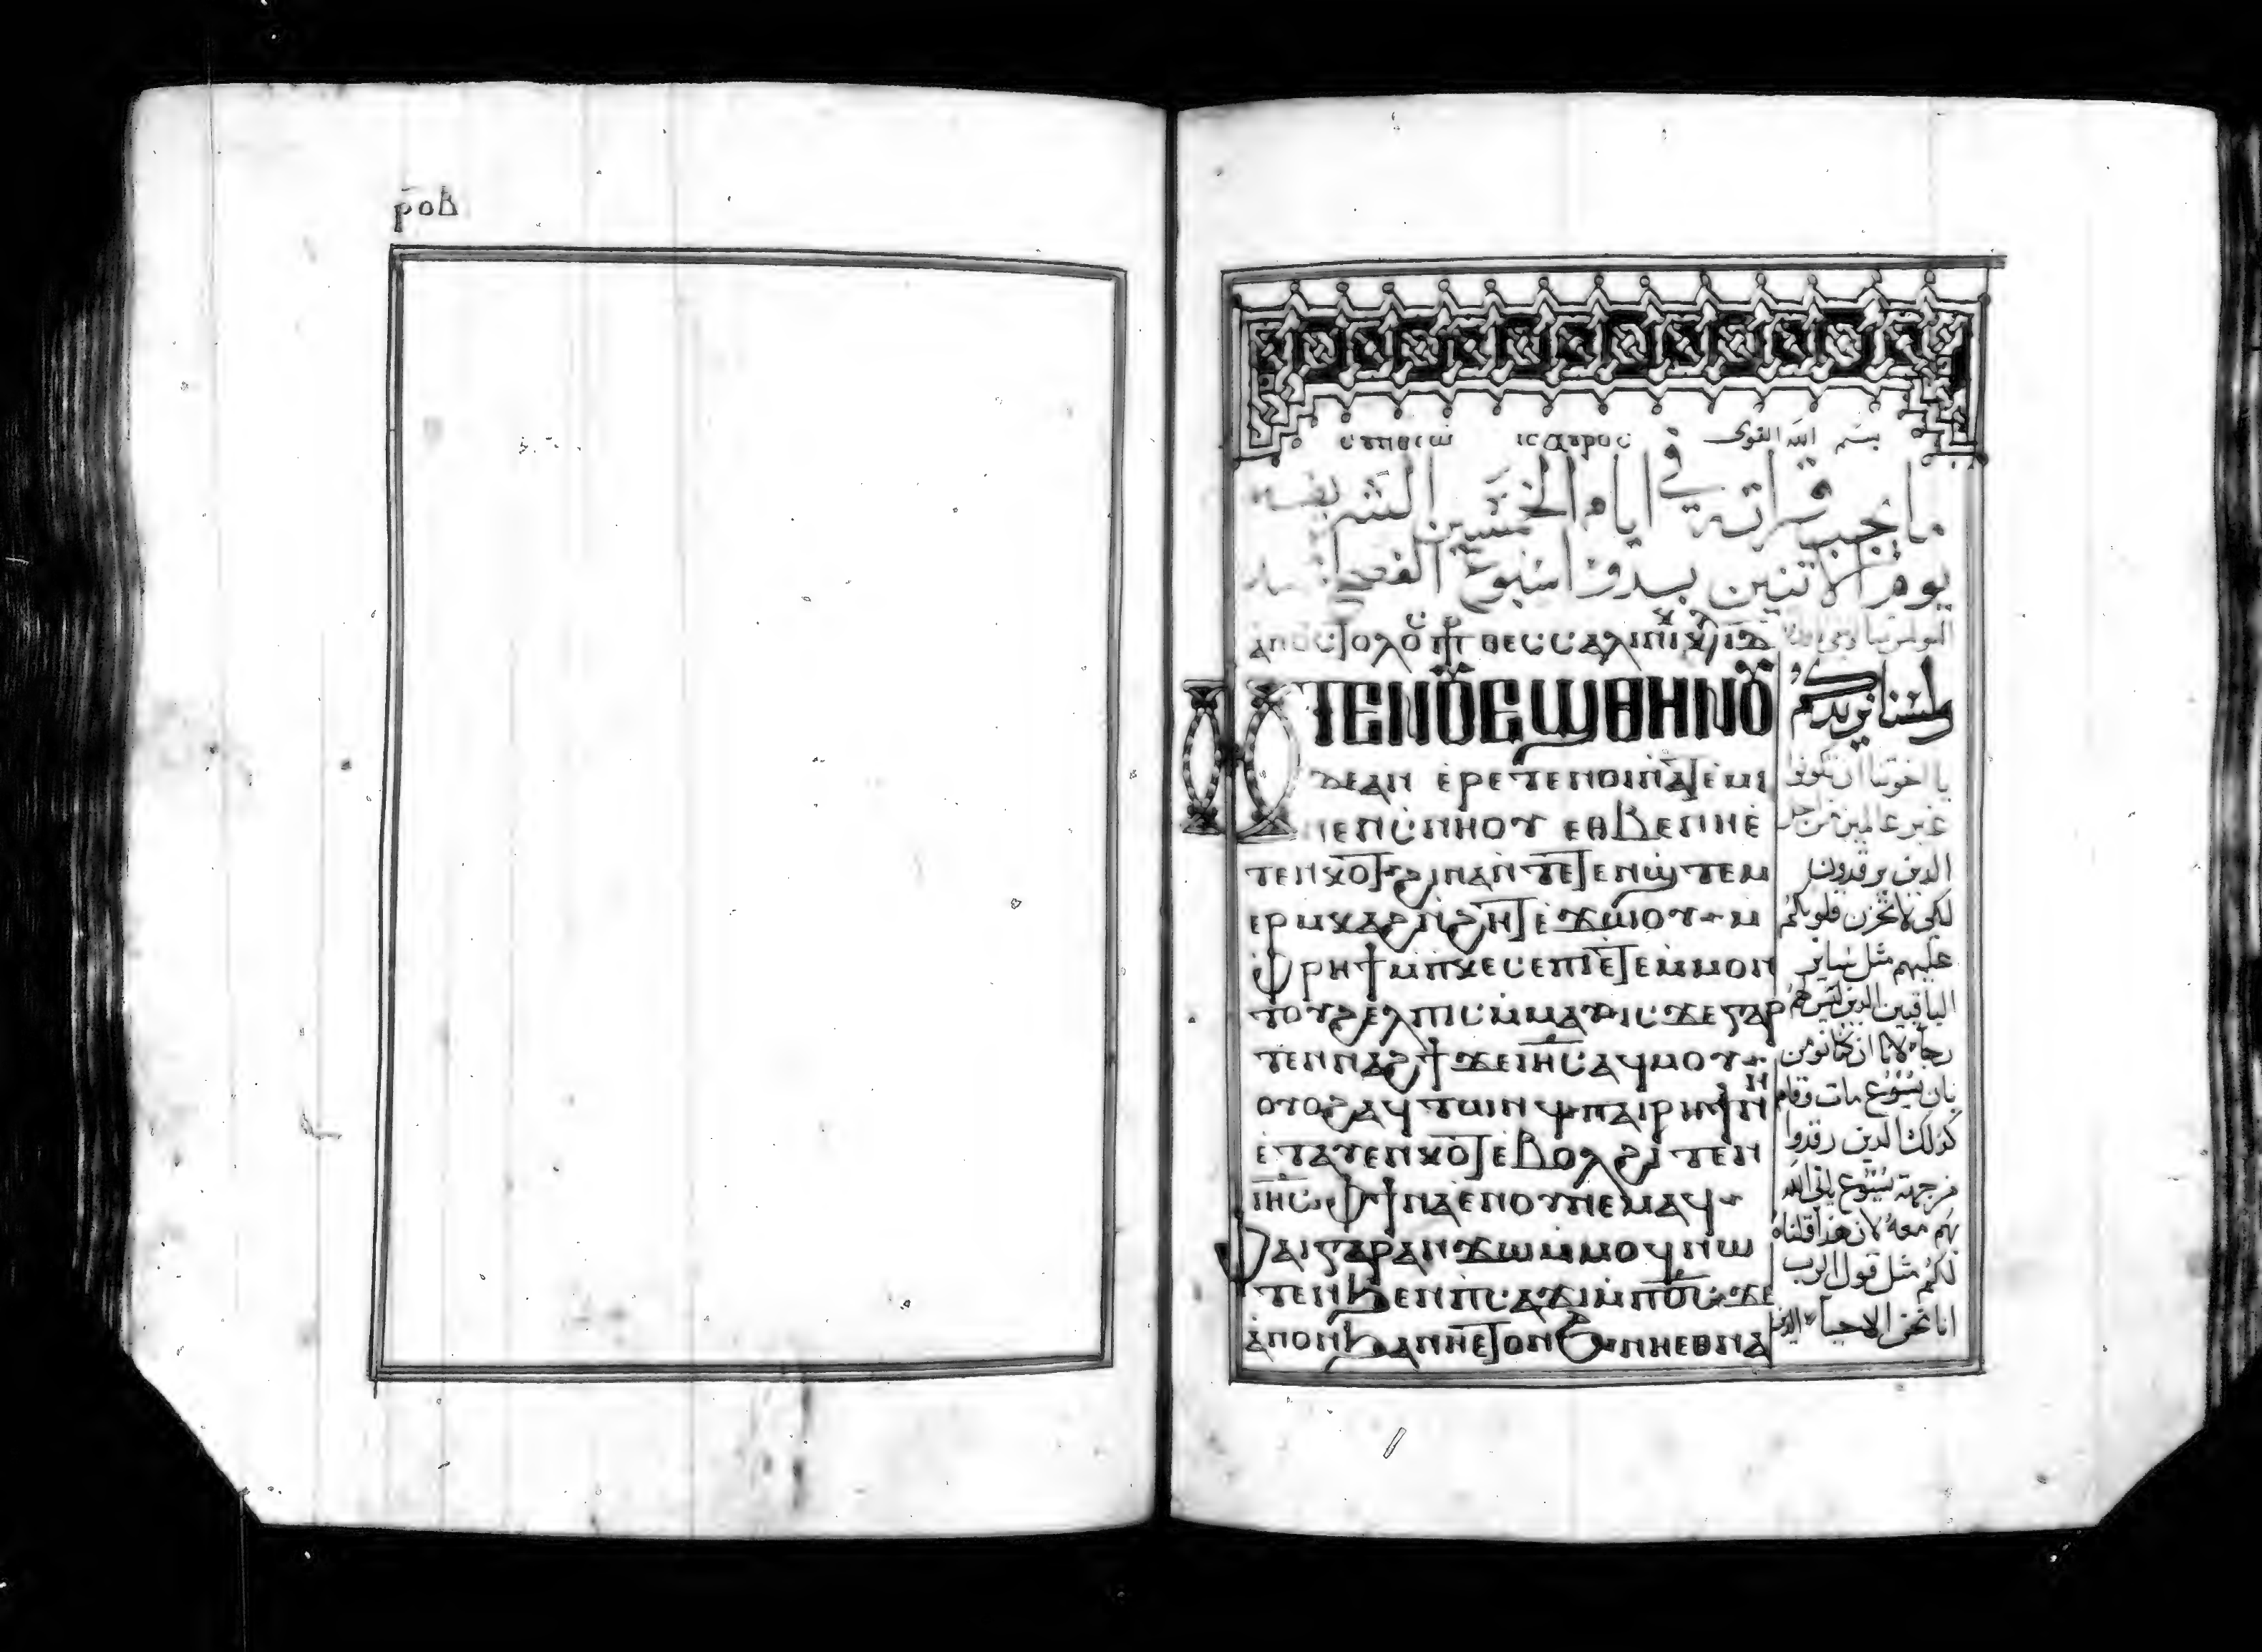 ⲣⲟⲃ
ⲥⲩⲛⲑⲉⲱ ⲓⲥⲭⲩⲣⲟⲥ بسم الله القوى
ما يجب قراته في ايام الخمسين الشريفة
يوم الاتنين بدو اسبوع الفصح
ⲁⲡⲟⲥⲧⲟⲗⲟ ⲑⲉⲥⲥⲁⲗ
ⲛⲧⲉⲛⲟⲩⲉϣⲑⲏⲛⲟⲩ
ⲇⲉⲁⲛ ⲉⲣⲉⲧⲉⲛⲟⲓⲛⲁⲧⲉⲙⲓ
ⲛⲉⲛⲥⲛⲏⲟⲩ ⲉⲑⲃⲉⲛⲏⲉ
ⲧⲉⲛⲭⲟⲧ ϩⲓⲛⲁⲛⲧⲉⲧⲉⲛϣⲧⲉⲙ
ⲉⲣⲙⲕⲁϩⲛϩⲏⲧ ⲉϫⲱⲟⲩ ⲙ
ⲫⲣⲏϯⲙⲡⲕⲉⲥⲉⲡⲓ ⲉⲧⲉⲙⲙⲟⲛ
ⲧⲟⲩϩⲉⲗⲡⲓⲥ ⲙⲙⲁⲩ ⲓⲥϫⲉⲅⲁⲣ
ⲧⲉⲛⲛⲁϩϯ ϫⲉ ⲓⲏⲥ ⲁϥⲙⲟⲩ
ⲟⲩⲟϩ ⲁϥⲧⲱⲛϥ ⲡⲁⲓⲣⲏϯ ⲛⲏ
ⲉⲧⲁⲩⲉⲛⲕⲟⲧ ⲉⲃⲟⲗϩⲓⲧⲉⲛ
ⲓⲏⲥ ⲫϯ ⲛⲁⲉⲛⲟⲩ ⲛⲉⲙⲁϥ
ⲫⲁⲓⲅⲁⲣ ⲁⲛϫⲱ ⲙⲙⲟϥ ⲛⲱ
ⲧⲉⲛ ϧⲉⲛⲡⲥⲁϫⲓ ⲙⲡⲟⲥ ϫⲉ
ⲁⲛⲟⲛ ϧⲁⲛⲏⲉⲧⲟⲛϧ ⲛⲏⲉⲑⲛⲁ
ولسنا نريدكم
يا اخوتنا ان تكونوا
غير عالمين من اجل
الذين يرقدون
لكى لا تحزن قلوبكم
عليهم مثل ساير
الباقين الذين ليس لهم
رجاء لانا ان كنا نومن
بان يسوع مات وقام
كذلك الذين رقدوا
من جهة يسوع ياتى الله
بهم معه لان هذا قلناه
لكم مثل قول الرب
انا نحن الاحياء الذين